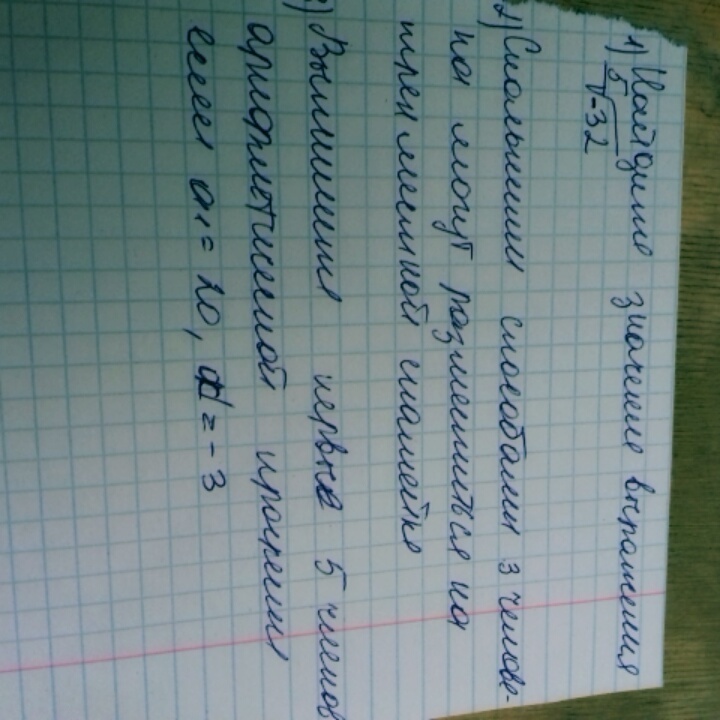 1) Найдите значение выражения
⁵√-32
2) Сколькими способами 3 челове-
ка могут разместиться на
трехместной скамейке
3) Выпишите первые 5 членов
арифметической прогрессии
если a₁ = 20, d = -3